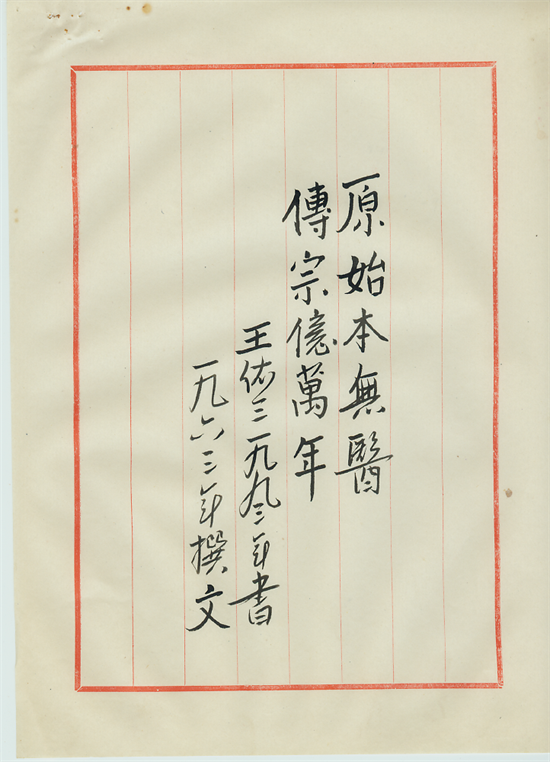 原始本無醫
傳宗億萬年
王佑三一九九三年書
一九六三年撰文